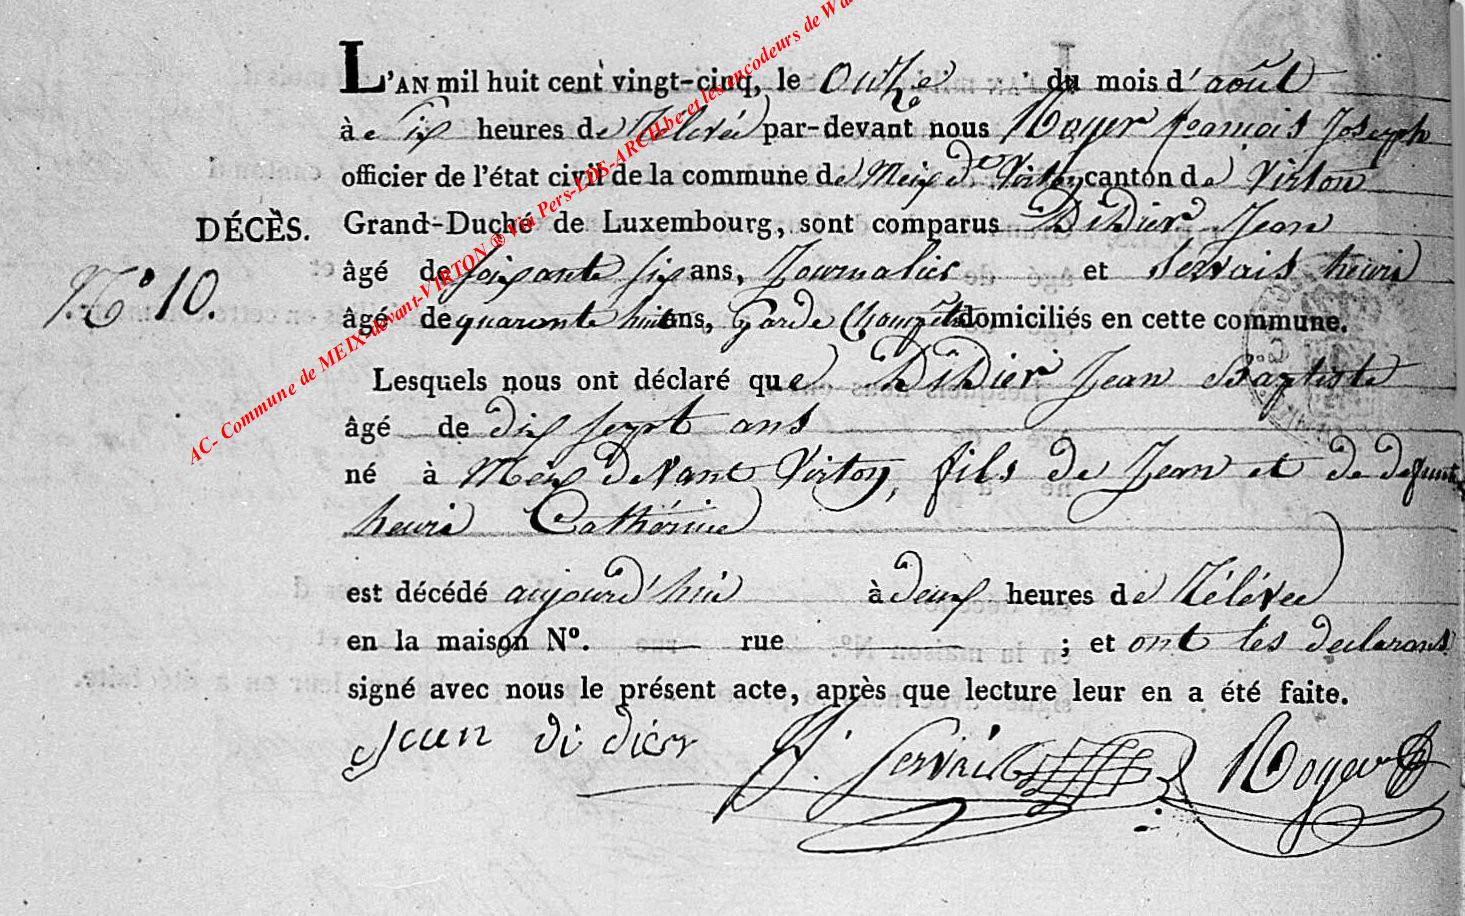 L'AN mil huit cent vingt-cinq, le onze du mois d'août
à six heures de relevée par-devant nous Royer francois Joseph
officier de l'état civil de la commune de Meix dt Virton canton de Virton
Grand-Duché de Luxembourg, sont comparus Didier Jean
DÉCÈS.
âgé de soixante six ans, Journalier et Servais henri
N.º 10.
âgé de quarante huit ans, Garde Champêtre domiciliés en cette commune.
Lesquels nous ont déclaré que Didier Jean Baptiste
âgé de dix sept ans
né à Meix devant Virton, fils de Jean et de defunte
henri Cathérine
est décédé aujourd'hui à deux heures de rélévée
en la maison Nº. — rue — ; et ont les declarans
signé avec nous le présent acte, après que lecture leur en a été faite.
Jean didier H. Servais Royer
AC- Commune de MEIX-devant-VIRTON ® Via Pers-LDS-ARCH.be et les encodeurs de